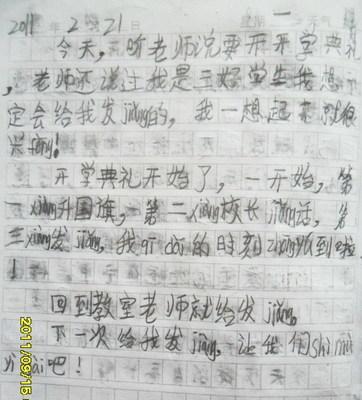 2011年2月21日 星期一 天气
今天，听老师说要开开学典礼
，老师还说过我是三好学生我想一
定会给我发jiǎng的，我一想起来就很
兴fèng!
开学典礼开始了，一开始，第
一xiàng升国旗，第二xiàng校长jiǎng话，第
三xiàng发jiǎng，我qī dài的时刻zhōng於到啦
!
回到教室老师就给发jiǎng。
下一次给我发jiǎng。让我们shì mù
yǐ dài吧!
2011/09/15